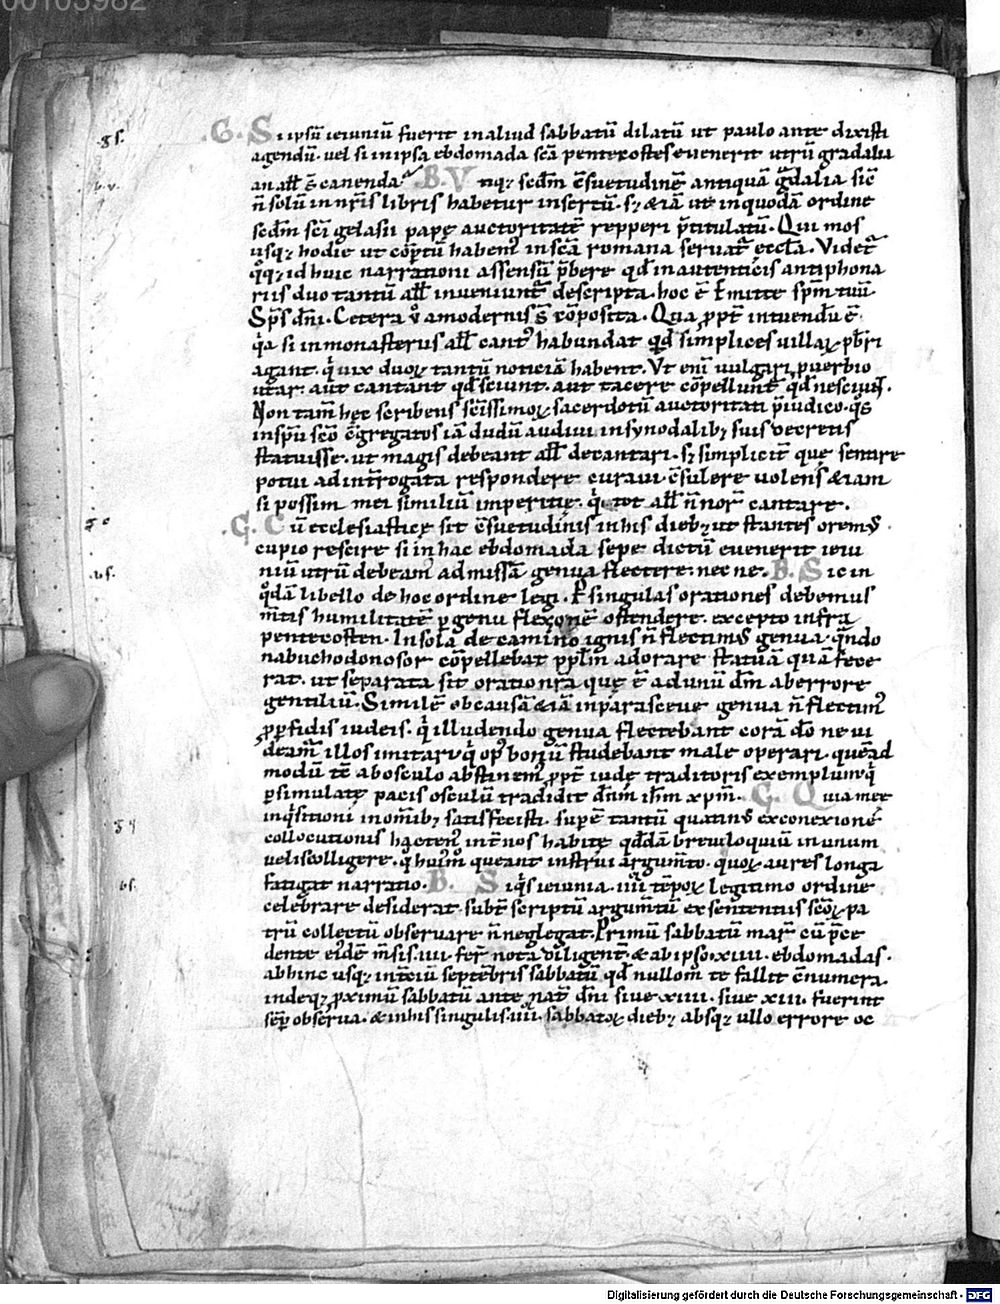 00103982
.G. Si ipsū ieiuniū fuerit in aliud sabbatū dilatū ut paulo ante dixisti
.gs.
agendū. vel si in ipsa ebdomada sc̄a pentecostes evenerit utrū gradalia
an all̄ s̄ canenda. .B. Vtiq; scdm̄ c̄suetudinē antiquā ḡdalia sic̄
n̄ solū in nr̄is libris habetur insertū. s; & iā ut in quodā ordine
scdm̄ sc̄i gelasii papę auctoritatē repperi p̄titulatū. Qui mos
usq; hodie ut cōptū habem᷒ in sc̄a romana servat᷑ eccl̄a. Videt᷑
q̊q; id huic narrationi assensū p̄bere qd̄ in autenticis antiphona
riis duo tantū all̄ inveniunt᷑ descripta. hoc ē Emitte sp̄m tuū.
Sp̄s dn̄i. Cetera v̊ a modernis s̄ cōposita. Qua ꝓpt̄ intuendū ē.
q̓a si in monasteriis all̄ cant᷒ habundat qd̄ simplices villaꝝ pb̄ri
agant. q̓ vix duoꝝ tantū noticiā habent. Vt enī vulgari ꝓverbio
utar. aut cantant qd̄ sciunt. aut tacere cōpellunt᷑ qd̄ nesciunt.
Non tam̄ hęc scribens sc̄issimoꝝ sacerdotū auctoritati p̄iudico. q̓s
in sp̄u sc̄o c̄gregatos iā dudū audivi in synodalib; suis decretis
statuisse. ut magis debeant all̄ decantari. s; simplicit᷑ quę sentire
potui ad int̄rogata respondere curavi c̄sulere volens & iam
si possim mei similiū imperitię. q̓ tot all̄ n̄ nor̄ cantare.
.G. Cū ecclesiasticę sit c̄suetudinis in his dieb; ut stantes orem᷒.
cupio rescire si in hac ebdomada sepe dictū evenerit ieiu
niū utrū debeam᷒ ad missā genua flectere. nec ne. .B. Sic in
.bs.
q̊dā libello de hoc ordine legi. P singulas orationes debemus
m̄tis humilitatē p genu flexionē ostendere. excepto infra
pentecosten. In sola de camino ignis n̄ flectim᷒ genua. q̄ndo
nabuchodonosor cōpellebat ppl̄m adorare statuā quā fece
rat. ut separata sit oratio nr̄a quę ē ad unū dm̄ ab errore
gentiliū. Similit᷑ ob causā & iā in parasceve genua n̄ flectim᷒
ꝓp pfidis iudeis. q̓ illudendo genua flectebant corā dō ne vi
deam᷑ illos imitari q̓ op᷒ bonū studebant male operari. quēad
modū & ab osculo abstinem᷒ ꝓpt̄ iudę traditoris exemplum q̓
p simulatę pacis osculū tradidit dn̄m ih̄m xp̄m. .G. Quia meę
inq̓sitioni in om̄ib; satisfecisti. sup ē tantū quatin᷒ ex conexione
.gs.
collocutionis hacten᷒ int̄ nos habitę qddā breviloquiū in unum
velis colligere. q̊ hui᷒m᷑ queant instrui argum̄to. quoꝝ aures longa
fatigat narratio. .B. Siq̓s ieiunia. iiii. tēpoꝝ legitimo ordine
.bs.
celebrare desiderat. subt᷑ scriptū argum̄tū ex sententiis sc̄oꝝ pa
trū collectū observare n̄ neglegat. Primū sabbatū mar̄. cū p̄ce
dente eiusdē m̄sis. iiii. fer̄. nota diligent᷑. & ab ipso. xiiii. ebdomadas.
ab hinc usq; in t̄ciū septēbris sabbatū qd̄ nullom̊ te fallit enumera.
indeq; ꝓximū sabbatū ante nat̄ dn̄i sive xiiii. sive xiii. fuerint
semp observa. & in his singulis. iiii. sabbatoꝝ dieb; absq; ullo errore oc
Digitalisierung gefördert durch die Deutsche Forschungsgemeinschaft - DFG